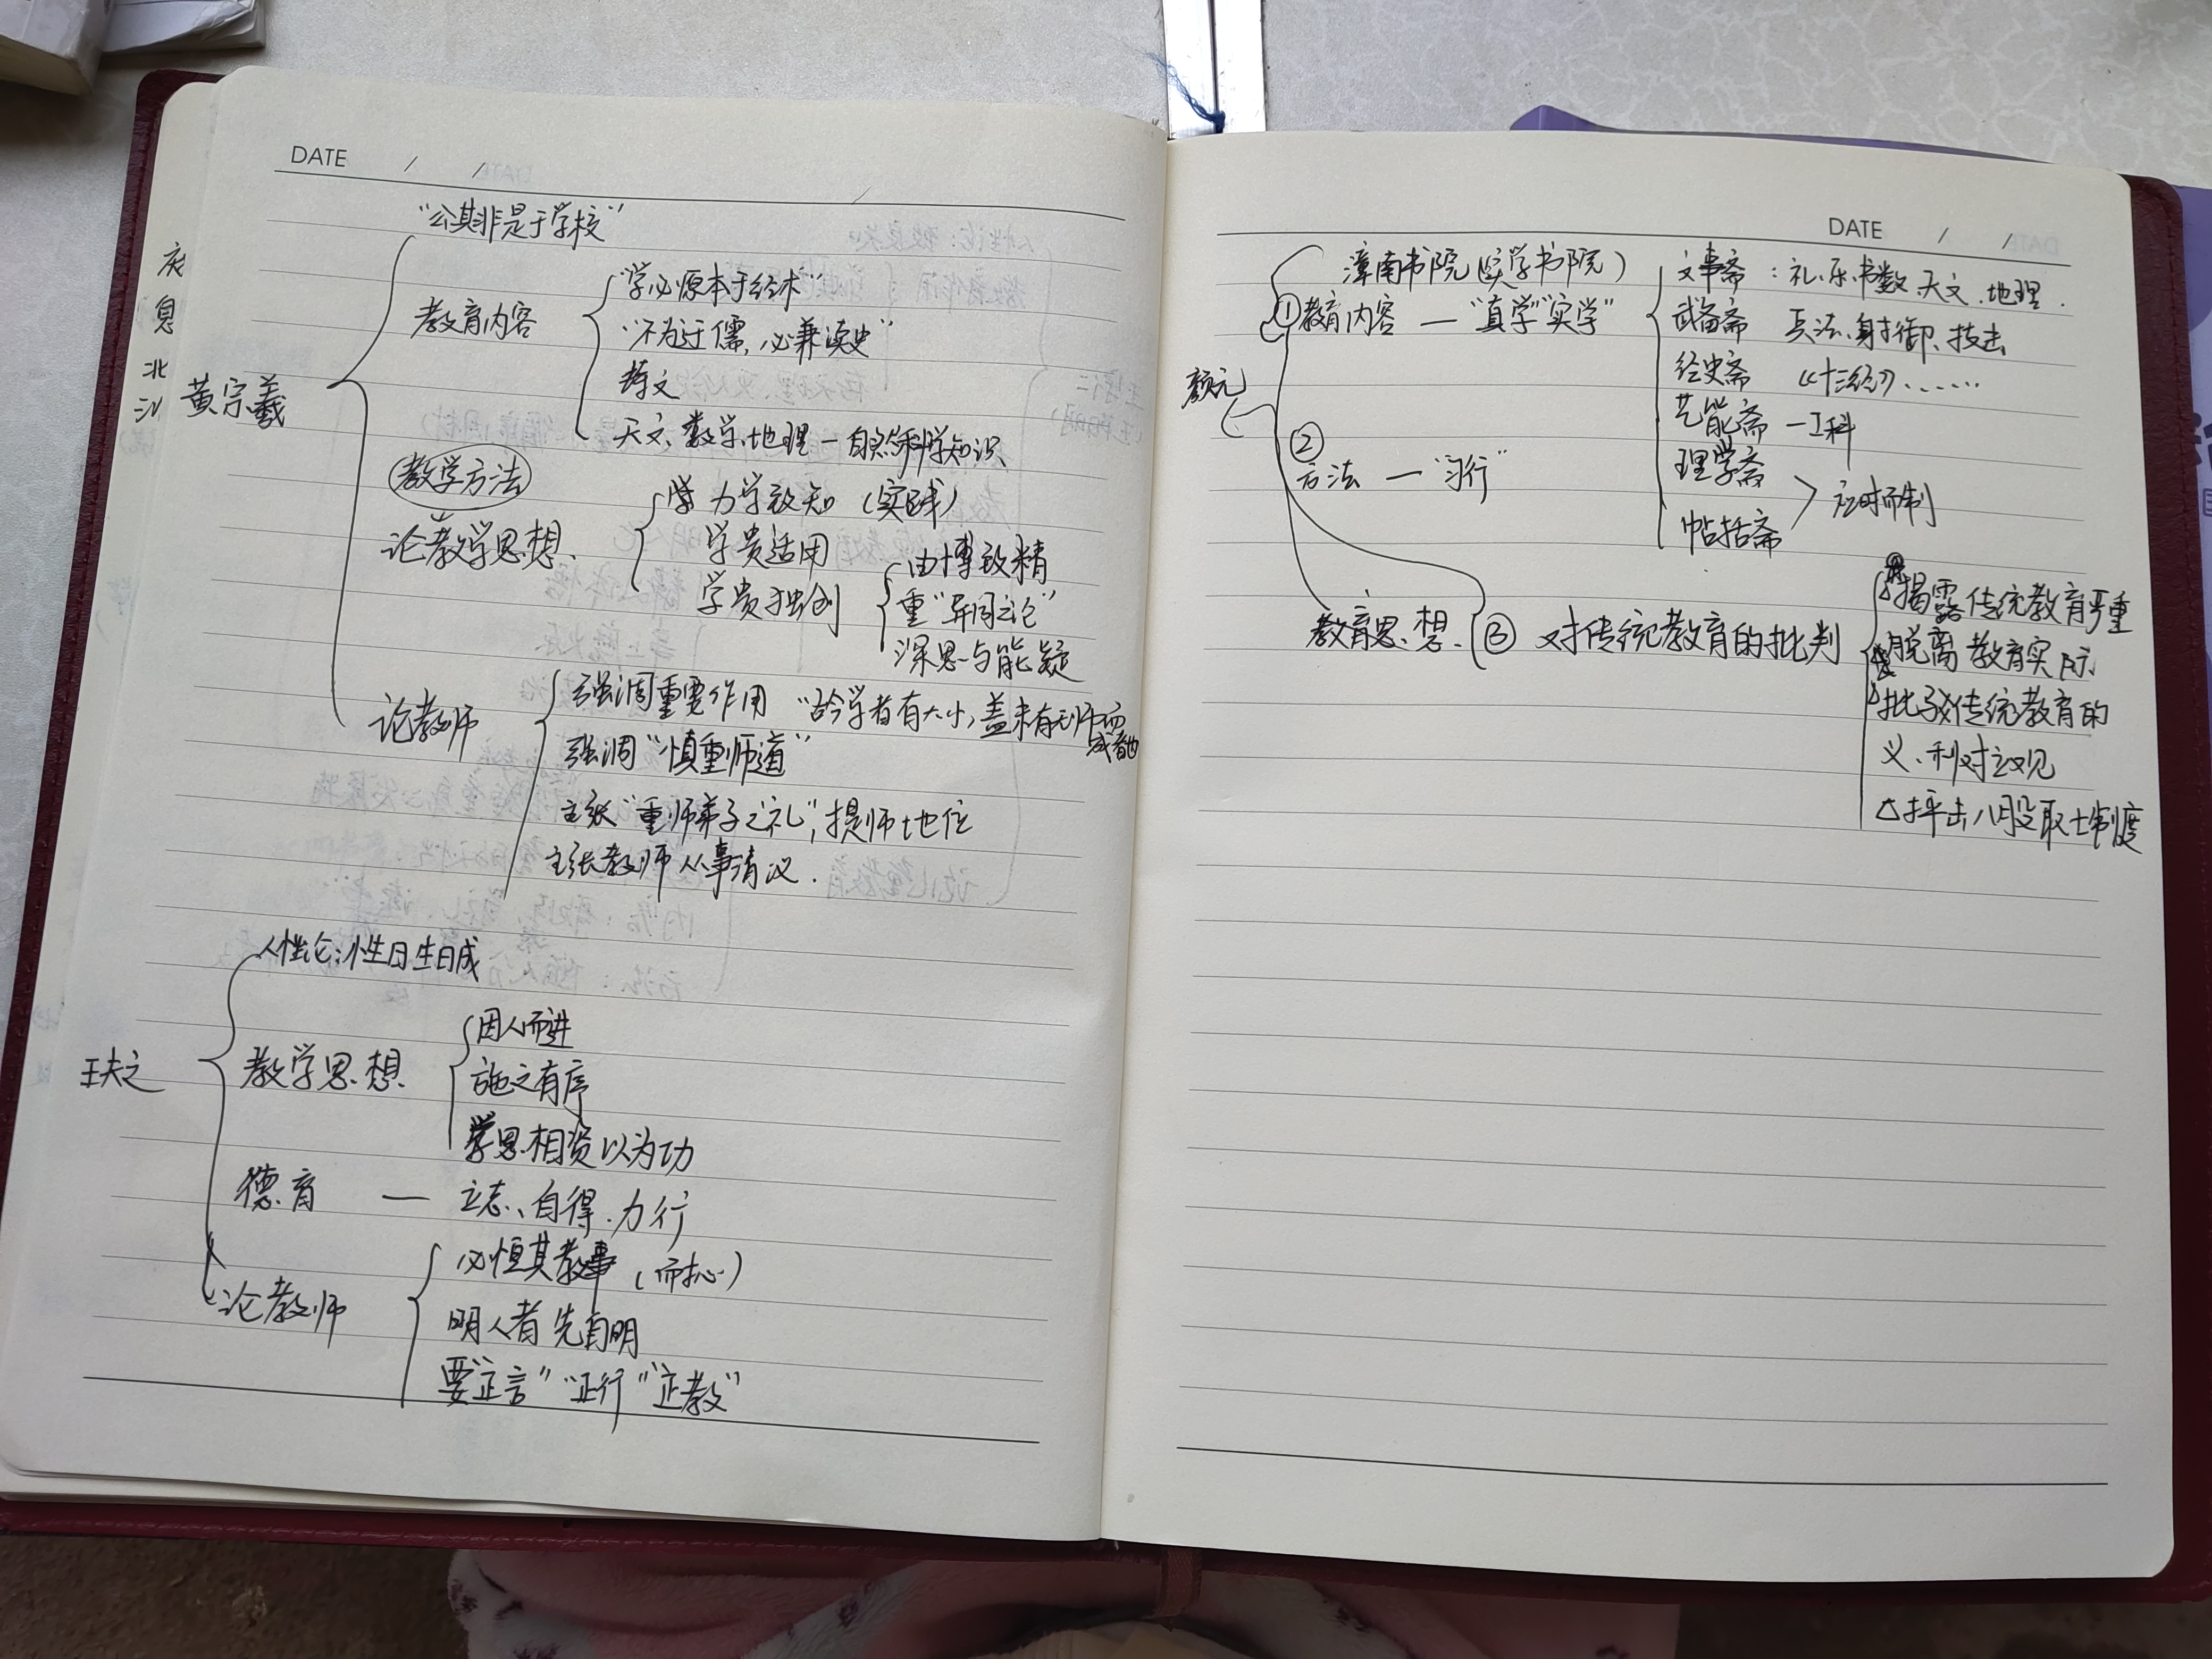 DATE / /
"公其非是于学校"
黄宗羲
教育内容
"学必原本于经术"
"不为迂儒,必兼读史"
诗文
天文、数学、地理—自然科学知识
教学方法
论教学思想
力学致知(实践)
学贵适用
学贵独创
由博致精
重"异同之论"
深思与能疑
论教师
强调重要作用 "古今学者有大小,盖未有无师而成者也
强调"慎重师道"
主张"重师弟子之礼",提师地位
主张教师从事清议.
王夫之
人性论:性日生日成
教学思想
因人而进
施之有序
学思相资以为功
德育 — 立志、自得、力行
论教师
必恒其教事
明人者先自明
要"正言""正行""正教"
DATE / /
颜元
漳南书院(实学书院)
①教育内容 — "真学""实学"
文事斋:礼、乐、书、数、天文、地理.
武备斋 兵法、射御、技击
经史斋 《十三经》……
艺能斋 — 工科
理学斋
帖括斋
应时而制
②
方法 — "习行"
教育思想
③ 对传统教育的批判
揭露传统教育严重
脱离教育实际
批驳传统教育的
义、利对立观
△抨击八股取士制度